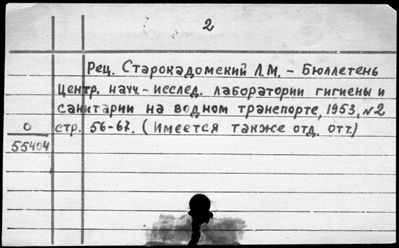 2
Рец. Старокадомский Л.М. – Бюллетень
центр. научн.-исслед. лаборатории гигиены и
санитарии на водном транспорте, 1953, №2
О стр. 56-67. (Имеется также отд. отт.)
55404